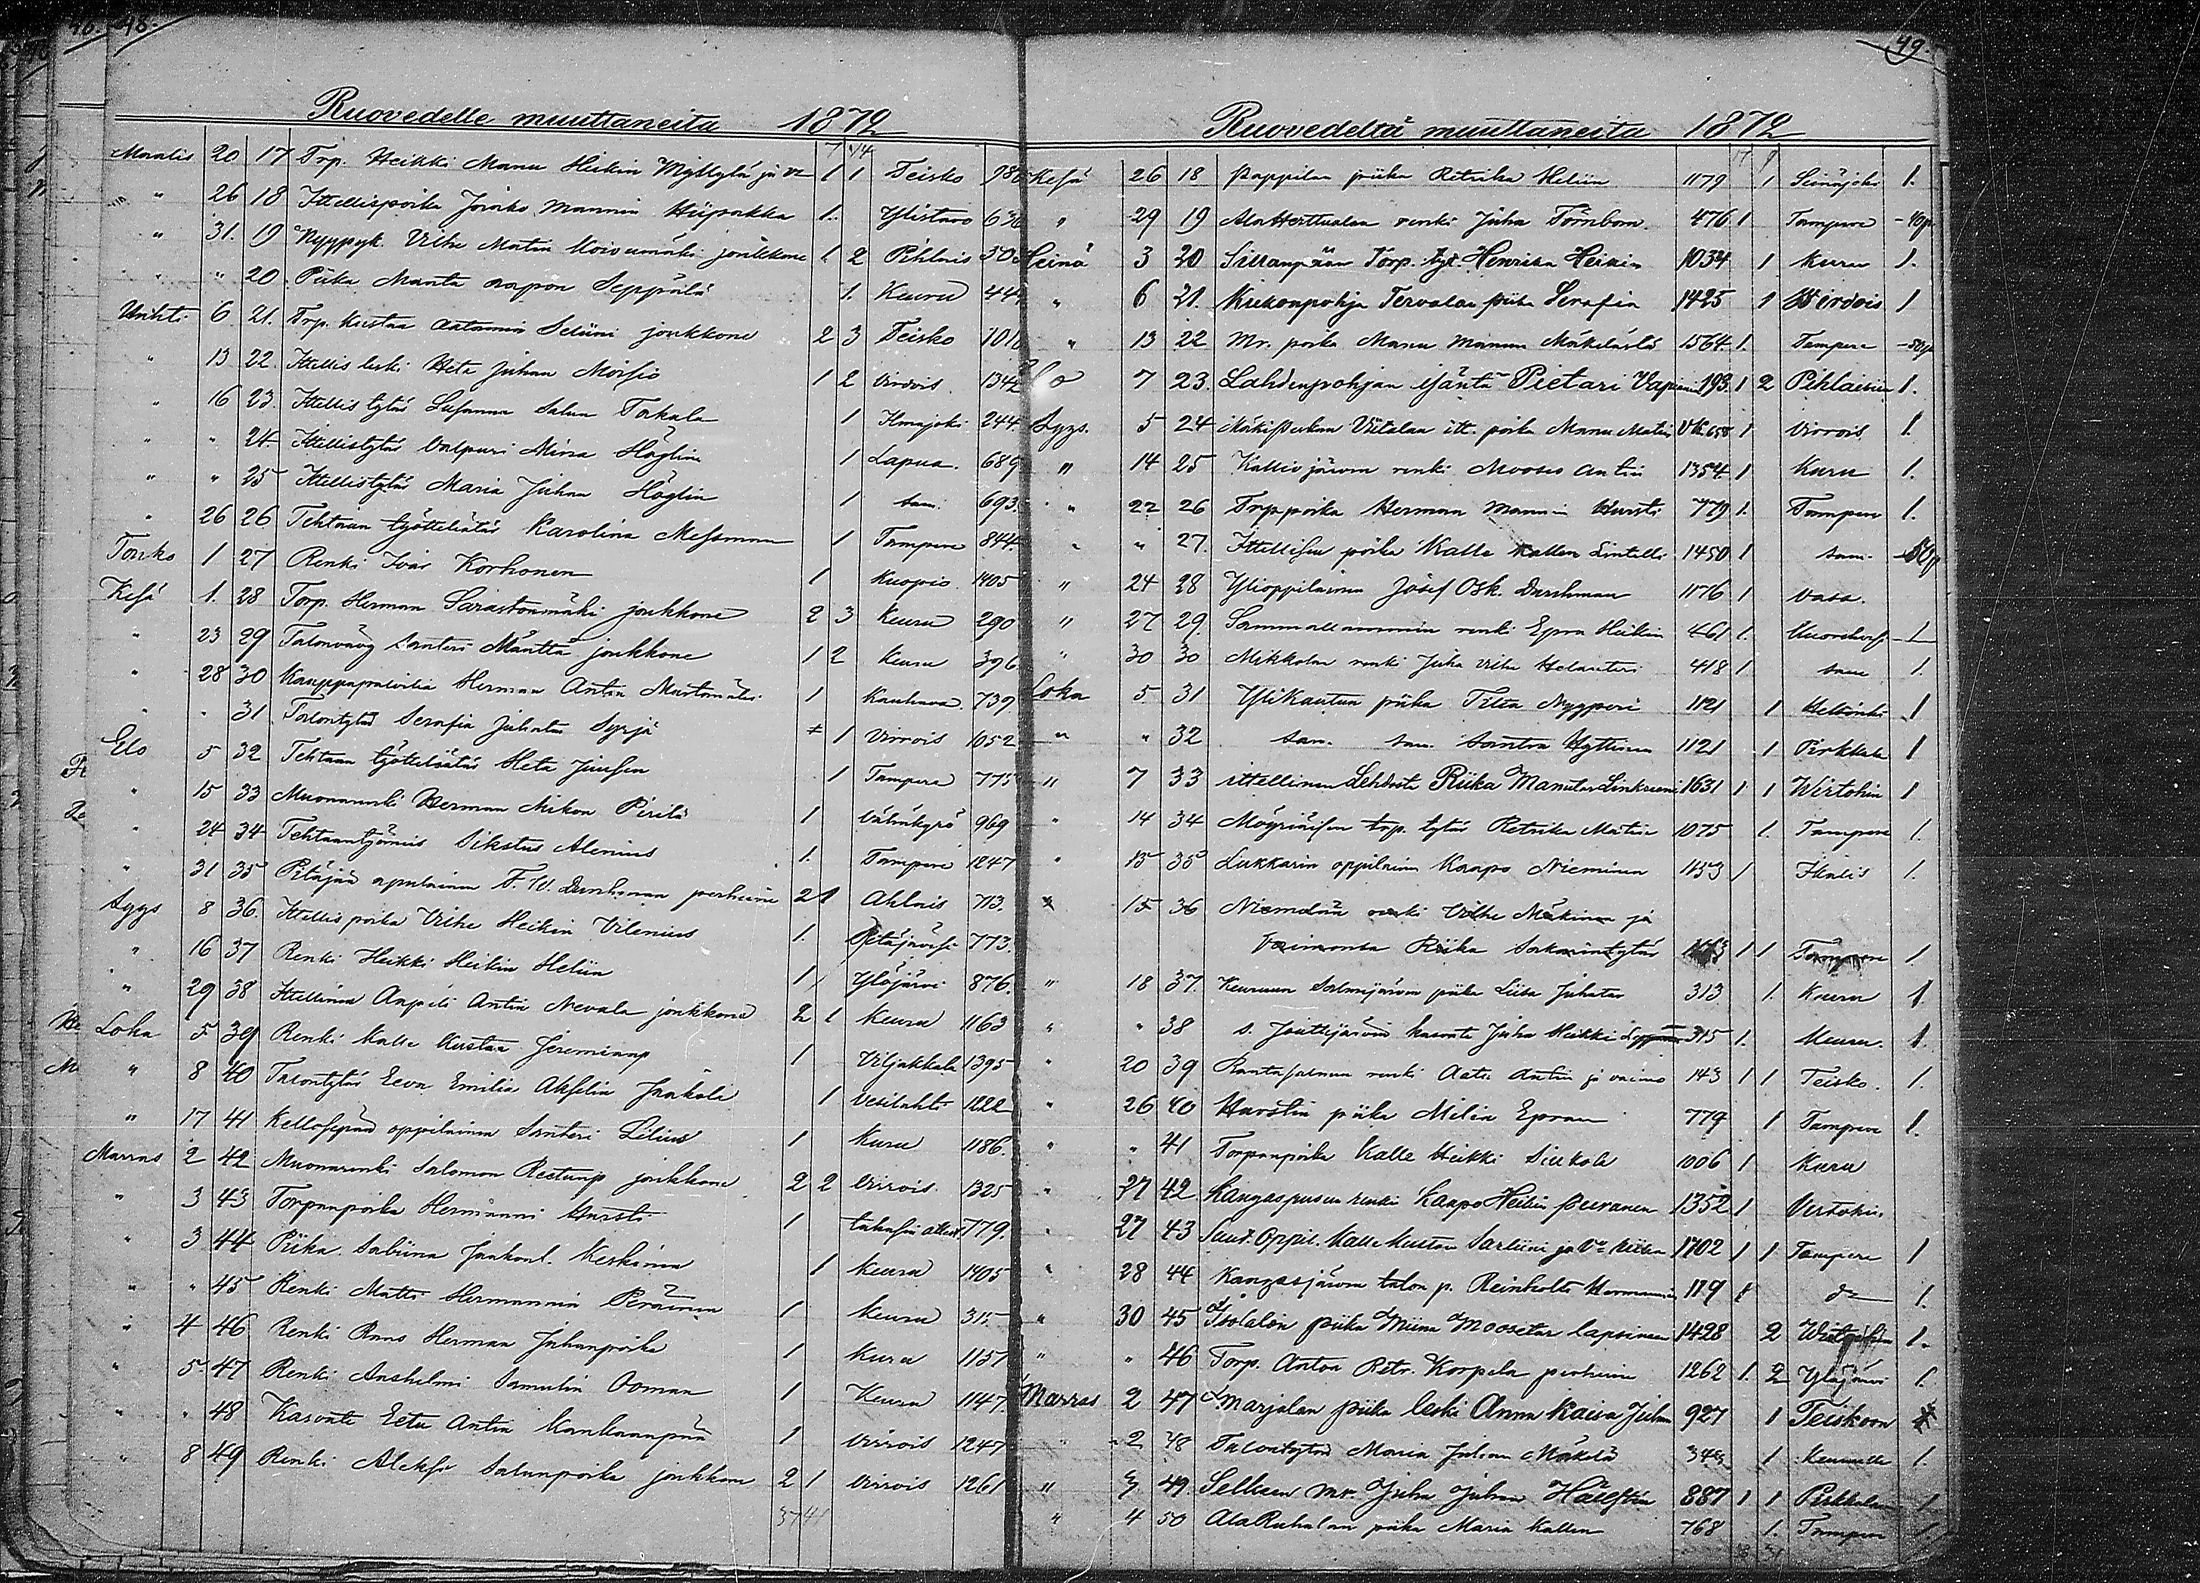 46. 48.
Ruovedelle muuttaneita 1872
7 14
Maalis 20 17 Trp. Heikki Manu Heikin Myllylä ja vo 1 1 Teisko 986
" 26 18 Ittellispoika Jaako Mannin Hiipakka 1. Ylistaro 636
" 31. 19 Nyyppyk. Vihe Matin Koivumäki joukkone 1 2 Pihlais
" " 20 Piika Manta Aapon Seppälä 1. Keuru 444
Huhti 6 21. Trp. Kustaa Aatamin Seliini joukkone 2 3 Teisko 101
" 13 22. Ittellis leski Heta Juhan Moisio 1 2 Virrois. 1342
" 16 23. Ittellis tytär Susanna Salun Torkala 1 Ilmajoki 244
" " 24. Ittellistytär Valpuri Miina Höglin 1 Lapua. 689
" " 25 Ittellistytär Maria Juhan Höglin 1 sam. 693
" 26 26 Tehtaan työtteliätär Karolina Messman 1 Tampere 844.
Touko 1 27 Renki Ivar Korhonen 1 Kuopio. 1405
Kesä 1. 28 Torp. Herman Sarastonmäki joukkone 2 3 Keuru 290
" 23 29 Talonväög Santeri Mänttä joukkone 1 2 Keuru 396
" 28 30 Kauppapalvelia Herman Antin Mustamäki 1 Kauhava. 739
" " 31 Talontytär Serafia Juhatar Syrjä 1 Virrois 1052
Elo 5 32 Tehtaan työtteliätär Heta Juusen 1 Tampere 775
" 15 33 Muonarenki Herman Mikon Pirilä 1 Vähäkyrö 969
" 24 34 Tehtaantyömies Sikstus Alenius 1. Tampere 1247
" 31 35 Pitäjän apulainen F. W. Durchman perheine 2 1 Ahlais 713.
Syys 8 36. Ittellis poika Vihe Heikin Vilenius 1. Petäjävesi 773.
" 16 37 Renki Heikki Heikin Heliin 1 Ylöjärvi 876.
" 29 38 Ittellinen Anperi Antin Nevala joukkone 2 1 Keuru 1163
Loka 5 39 Renki Kalle Kustaa Jeremianp 1 Viljakkala 1395
" 8 40 Talontytär Eeva Emilia Akselin Jaakola 1 Vesilahti 1222
" 17 41 Kellosepän oppilainen Santeri Lilius 1 Kuru 1186.
Marras 2 42 Muonarenki Salomon Reetunp joukkone 2 2 Virrois. 1325
" 3 43 Torpanpoika Hermanni Hursti 1 779.
" 3 44 Piika Sabiina Jaakont. Keskinen 1 Keuru 1405
" " 45 Renki Matti Hermannin Peräinen 1 Keuru 315
" 4 46 Renki Rans Herman Juhanpoika 1 Kuru 1157
" 5 47 Renki Anshelmi Samulin Ooman 1 Keuru 1147
" " 48 Kasonti Eetu Antin Kankaanpää 1 Virrois 1247
" 8 49 Renki Aleksi Salunpoika joukkone 2 1 Virrois 1261
37 41
49.
Ruovedeltä muuttaneita 1872
17 9
Kesä 26 18 Pappilan piika Retrika Heliin 1179 1 Seinäjoki 1.
" 29 19 AlaHerttualan renki Juha Törnbom. 476 1 Tampere -40p
Heinä 3 20 Sillanpään Torp. tyt. Henrika Heikin 1034 1 Kuru 1.
" 6 21. Kuekonpohja Tervalan piika Serafia 1425 1 Wirrois 1
" 13 22 Mr. poika Manu Manun Mäkelästä 1564. 1. Tampere -50p
Elo 7 23. Lahdenpohjan isäntä Pietari Vap 193. 1 2 Pihlaisin 1.
Syys. 5 24 Mäkipeskan Viitalan itt. poika Manu Matin 658 1 Virrois 1.
" 14 25 Kallio järven renki Mooses Antin 1354 1 Kuru 1.
" 22 26 Trp poika Herman Mannin Hursti 779 1. Tampere 1.
" " 27. Ittellisen poika Kalle Kallen Lintelli 1450 1 sam. 50p
" 24 28 Ylioppilainen Josef Osk. Durchman 1176 1 Vasa.
" 27 29. Sammallammin renki Epra Heikin 461 1. 1
" 30 30 Mikkolan renki Juha Vihe Helanteri 418 1 sam 1.
Loka 5 31 Ylikautun piika Tilta Nyyperi 1121 1 Helsinki 1
" " 32 san. san. Santra Hyttinen 1121 1 Pirkkala 1
" 7 33 ittellinen Lehdosta Riika Manutar Linkreeni 1631 1 1 Wirtohin 1
" 14 34 Möyriäisen trp. tytär Retrika Matin 1075 1. Tampere 1.
" 15 35 Lukkarin oppilainen Kaapo Nieminen 1153 1 Ikalis 1.
" 15 36 Niemelän renki Vilhe Mäkinen ja
Vaimonsa Riika Sakarintytär 1 1 Tampere 1
" 18 37. Keuruun Salmijärven piika Liisa Juhatar 313 1. Kuru 1
" " 38 s. Jouttijärven kasonti Juha Heikki 315 1. Keuru. 1.
" 20 39 Rantasalmen renki Aatu Antin ja vaimo 143 1 1 Teisko. 1.
" 26 40 Hurstin piika Milia Epran 779 1 Tampere 1.
" " 41 Torpanpoika Kalle Heikki Siukola 1006 1 Kuru
" 27 42 Kangaspusun renki Kaapo Heikin Puranen 1352 1 Virtohin.
" 27 43 Suut. Oppil. Kalle Kustaa Sarliini ja Vo Riika 1702 1 1 Tampere 1
" 28 44 Kangasjärven talon p. Reinholti Hermannin 119 1 do 1.
" 30 45 Isolalon piika Miina Moosetar lapsineen 1428 2 1.
" " 46 Torp. Anton Retr. Korpela perheine 1262 1. 2 Ylöjärvi 1.
Marras 2 47 Marjalan piika leski Anna Kaisa Juhan 927 1 Teiskoon
" 2 48 Talontytär Maria Juhan Mäkelä 343 1 Keuruulle 1.
" 3 49 Selkeen mr. Juha Juhan Hällstin 887 1 1 Pirkkalan 1
" 4 50 AlaRuhalan piika Maria Kallen 768 1. Tampere 1